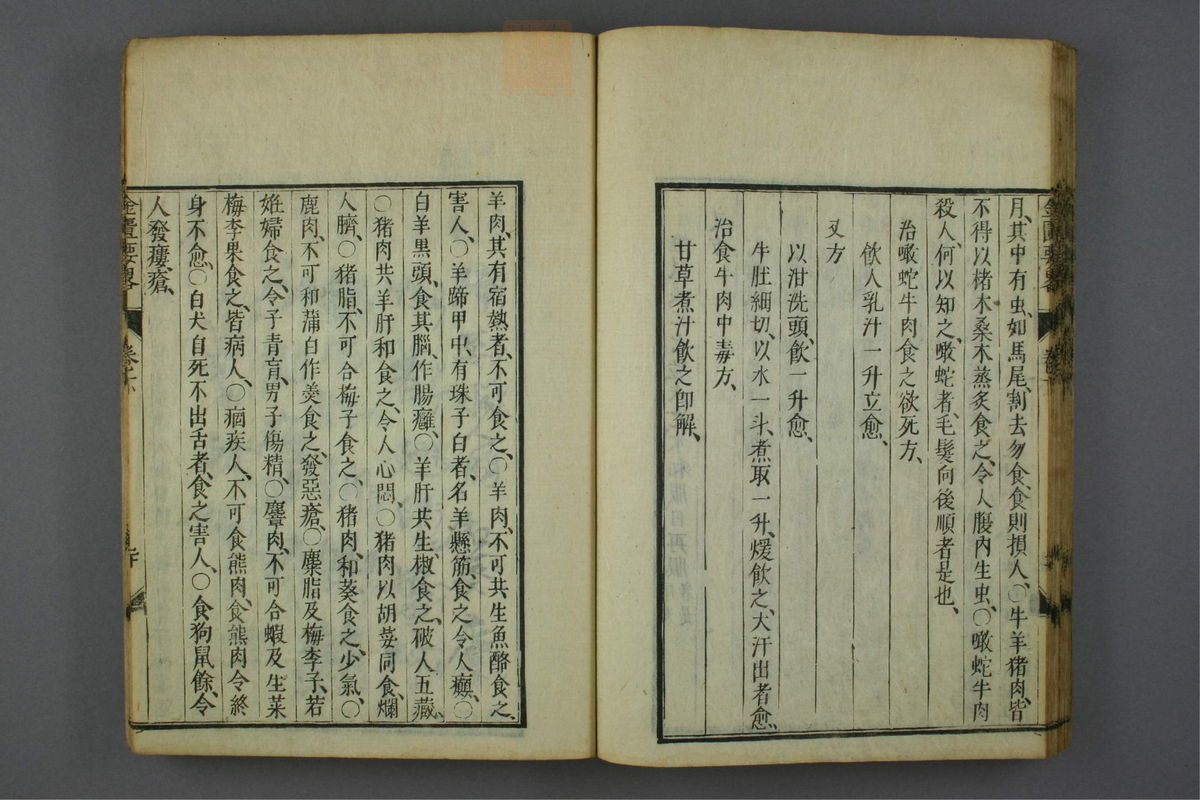 月、其中有虫、如馬尾、割去勿食、食則損人、〇牛羊猪肉、皆
不得以楮木桑木蒸炙食之、令人腹內生虫、〇噉蛇牛肉
殺人、何以知之、噉蛇者、毛髮向後順者是也、
治噉蛇牛肉食之欲死方、
飲人乳汁一升立愈、
又方
以泔洗頭、飲一升愈、
牛肚細切、以水一斗、煮取一升、煖飲之、大汗出者愈、
治食牛肉中毒方、
甘草煮汁飲之卽解、
羊肉、其有宿熱者、不可食之、〇羊肉、不可共生魚酪食之、
害人、〇羊蹄甲中、有珠子白者、名羊懸筋、食之令人癲、〇
白羊黒頭、食其腦、作腸癰、〇羊肝共生椒食之、破人五藏、
〇猪肉共羊肝和食之、令人心悶、〇猪肉以胡荽同食、爛
人臍、〇猪脂、不可合梅子食之、〇猪肉、和葵食之、少氣、〇
鹿肉、不可和蒲白作羮食之、發惡瘡、〇麋脂及梅李子、若
姙婦食之、令子青盲、男子傷精、〇麞肉、不可合蝦及生菜
梅李果食之、皆病人、〇痼疾人、不可食熊肉、食熊肉令終
身不愈、〇白犬自死不出舌者、食之害人、〇食狗鼠餘、令
人發瘻瘡、
金匱要畧